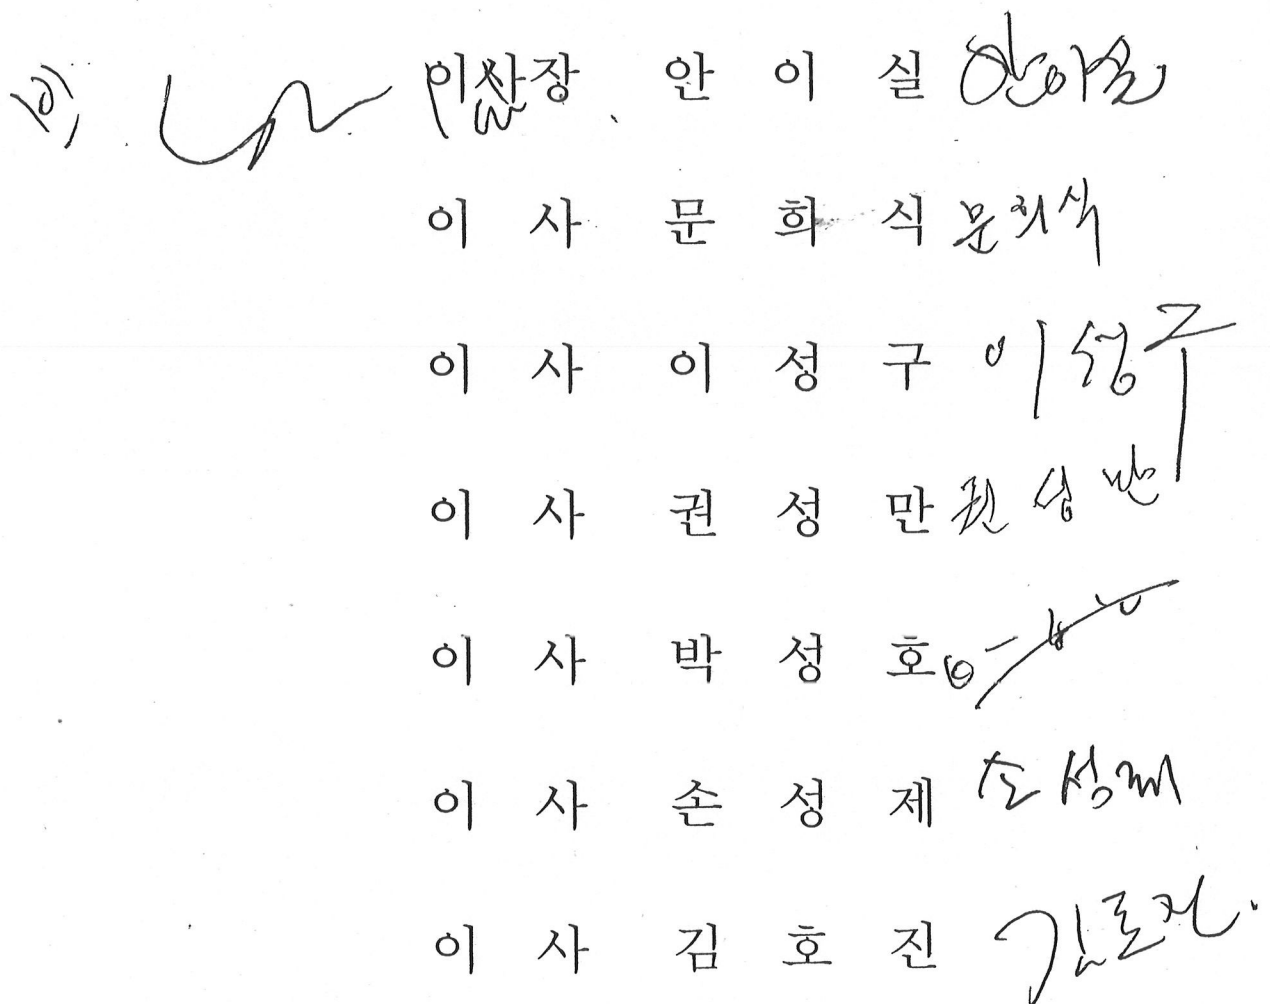 이사장 안 이 실 안이실
이 사 문 희 식 문희식
이 사 이 성 구 이성구
이 사 권 성 만 권성만
이 사 박 성 호
이 사 손 성 제 손성제
이 사 김 호 진 김호진